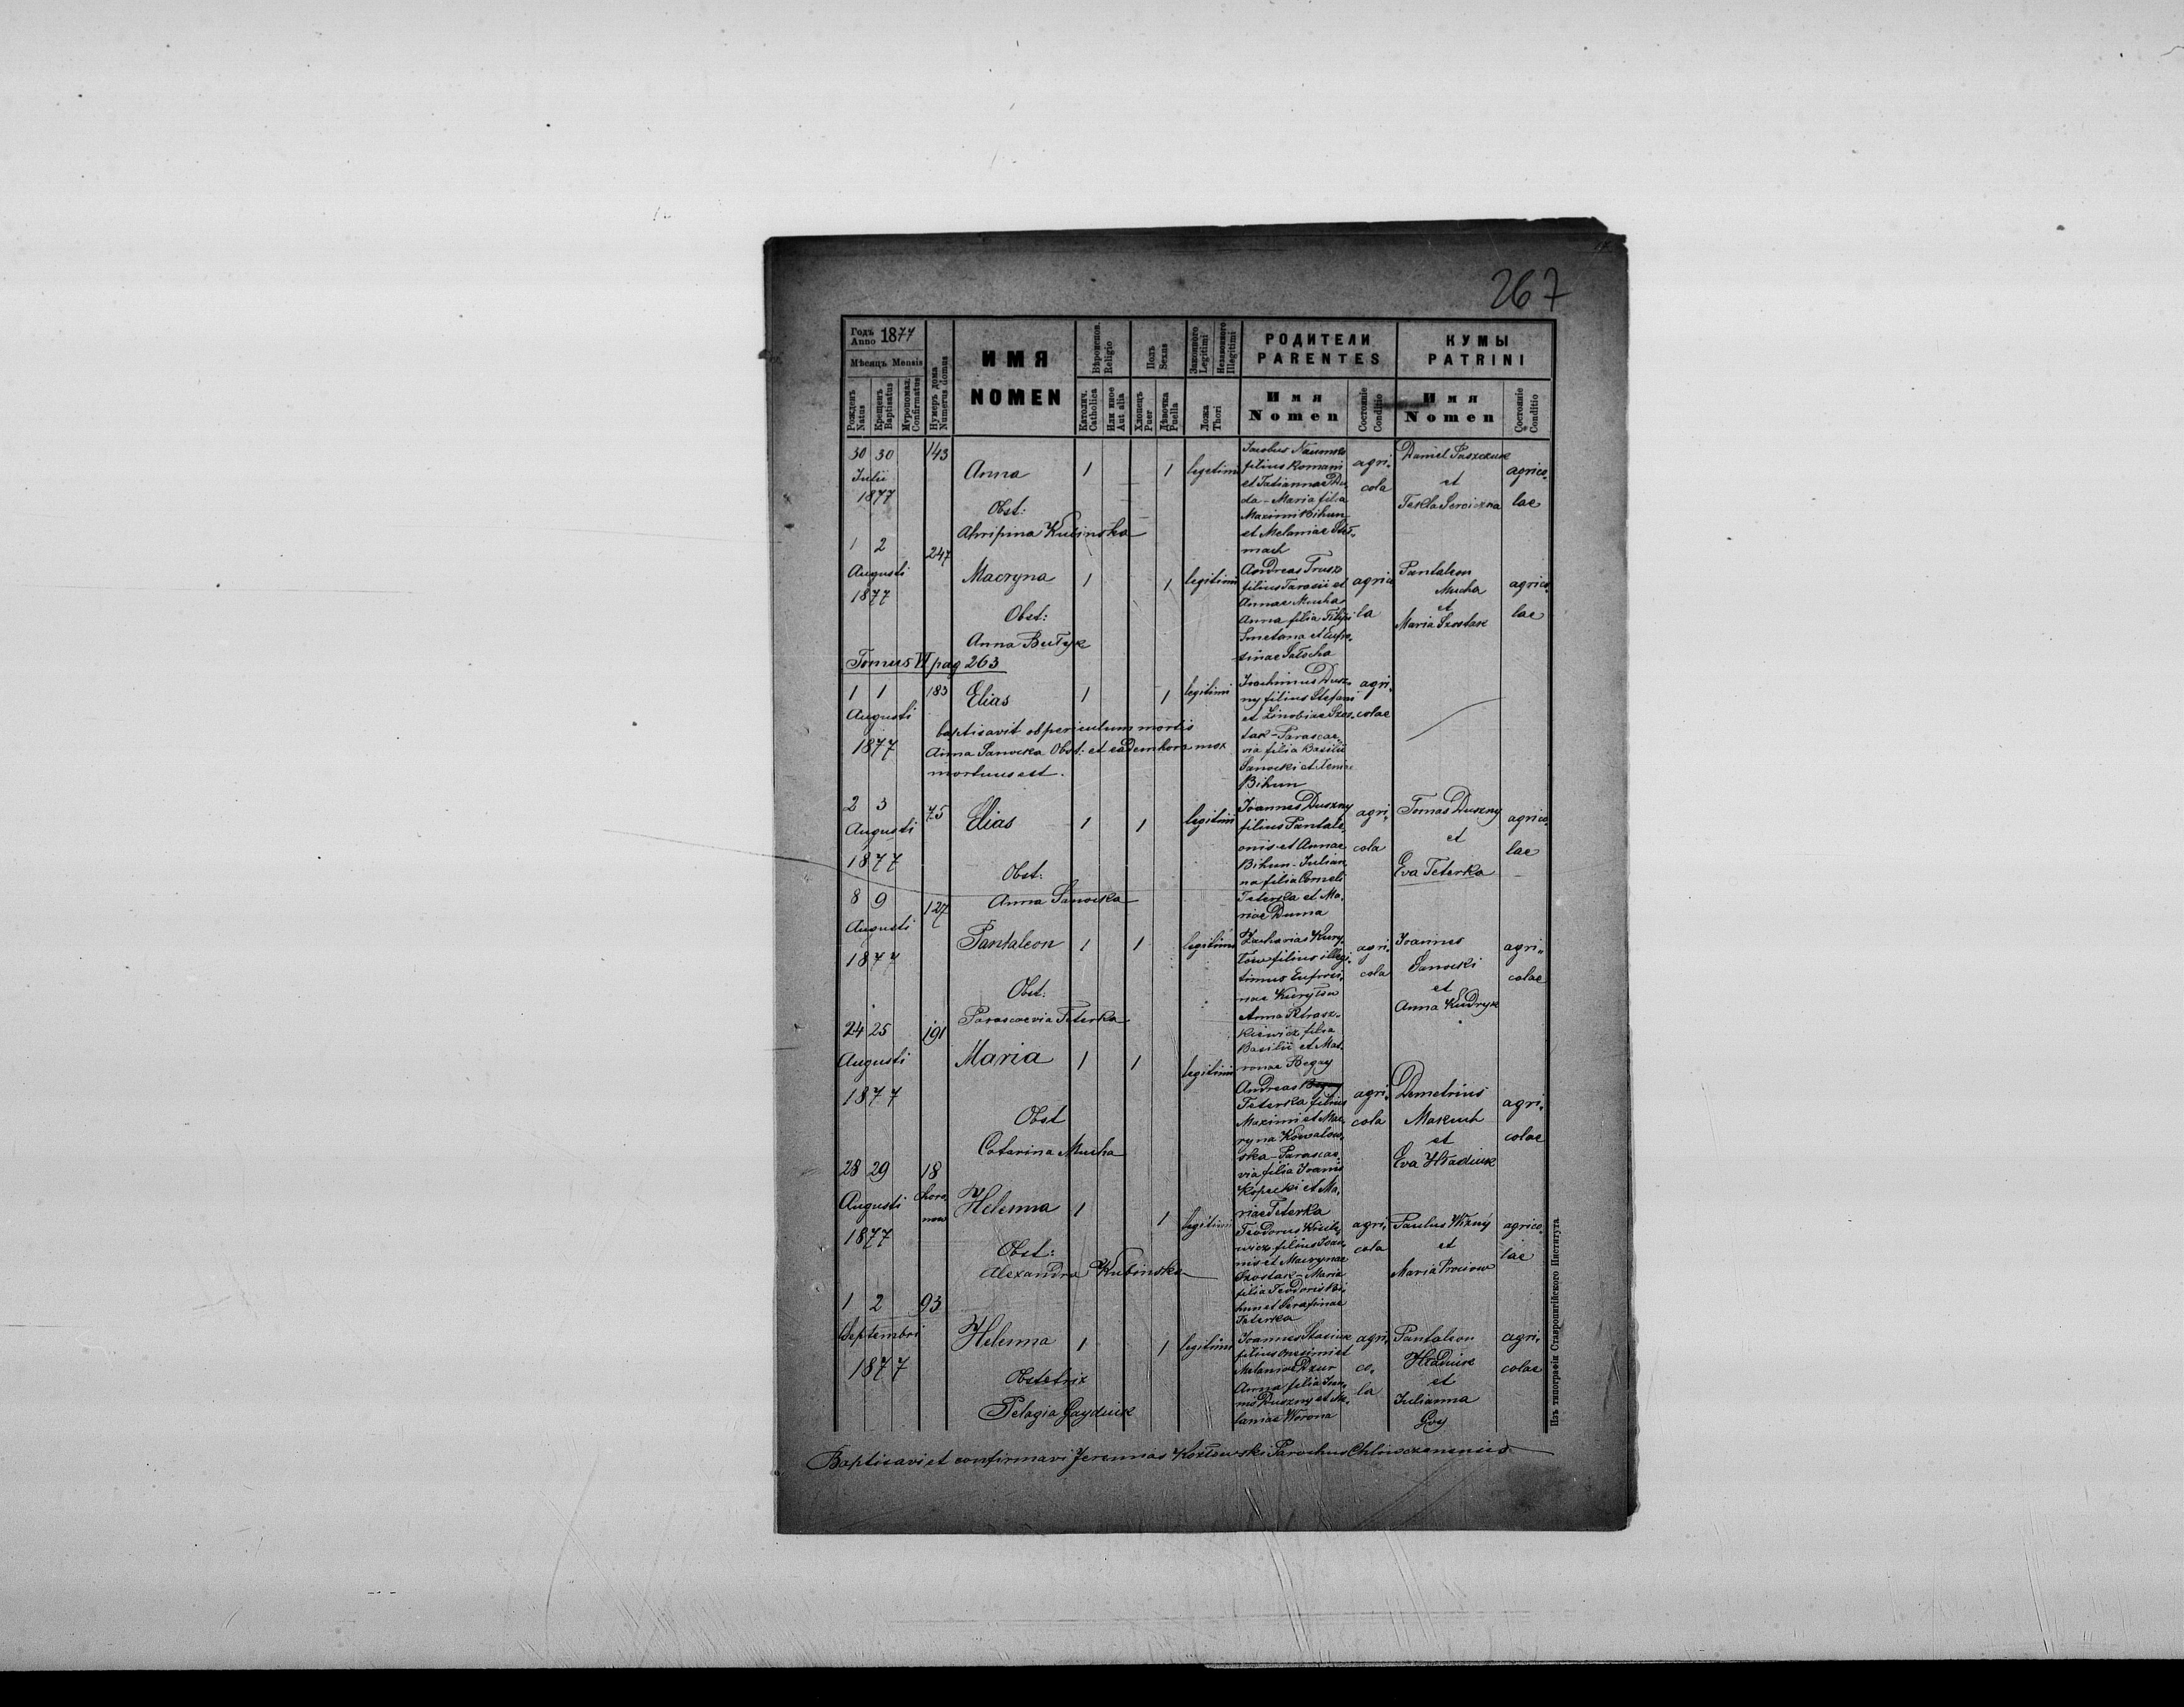 267
Годъ Anno 1877
Мѣсяцъ Mensis
Рожденъ Natus
Крещенъ Baptisatus
Муропомаз. Confirmatus
Нумеръ дома Numerus domus
ИМЯ
NOMEN
Вѣроисповѣд. Religio
Католич. Catholica
Или иное Aut alia
Полъ Sexus
Хлопецъ Puer
Дѣвочка Puella
Законного Legitimi
Незаконного Illegitimi
Ложа Thori
РОДИТЕЛИ
PARENTES
Имя
Nomen
Состояніе Conditio
КУМЫ
PATRINI
Имя
Nomen
Состояніе Conditio
30 30 Julii 1877
143
Anna
Obst:
Ahripina Kubinska
1 1 legitimi
Jacobus Naumko
filius Romani
et Tatiannae Du-
da - Maria filia
Maximi Bihun
et Melaniae Stel-
mach
agri-
cola
Daniel
et
Tekla
agrico-
lae
1 2 Augusti 1877
247
Macryna
Obst:
Anna Butyk
1 1 legitimi
Andreas Trusz
filius Tarasii et
Annae Mucha
Anna filia Filipi
Smetana et Eufro-
sinae
agrico
la
Pantaleon
Mucha
et
Maria Szostak
agrico-
lae
Tomus VI pag 263
1 1 Augusti 1877
183
Elias
1 1 legitimi
baptisavit ob periculum mortis
Anna Sanocka Obst: et eadem hora mox
mortuus est.
Joachimus Dusz-
ny filius Stefani
et Zinobiae Szos-
tak - Parascae-
via filia Basilii
Sanocki et Xeniae
Bihun
agri-
colae
2 3 Augusti 1877
75
Elias
Obst:
Anna Sanocka
1 1 legitimi
Joannes Duszny
filius Pantale-
onis et Annae
Bihun - Julian-
na filia Corneli
Teterka et Ma-
riae Duma
agri-
cola
Tomas Duszny
et
Eva Teterka
agrico-
lae
8 9 Augusti 1877
127
Pantaleon
Obst:
Parascaevia Teterka
1 1 legitimi
Zacharias Kury-
łow filius illegi-
timus Eufrosi-
nae
Anna Petrasz-
kiewicz filia
Basilii et Mat-
ronae Begay
agri-
cola
Joannes
Sanocki
et
Anna Kudryk
agri-
colae
24 25 Augusti 1877
191
Maria
Obst
Catarina Mucha
1 1 legitimi
Andreas
Teterka filius
Maximi et Mac-
ryna Kowalow-
ska - Parascae-
via filia Joanis
Kopecki et Ma-
riae Teterka
agri-
cola
Demetrius
Makuch
et
Eva Hładiuk
agri-
colae
28 29 Augusti 1877
18
Helenna
Obst:
Alexandra Kubinska
1 1 legitimi
Teodorus
filius Joan-
nis et Macrynae
Szostak - Maria
filia Teodoris Bi-
hun et Serafinae
Teterka
agri-
cola
Paulus
et
Maria Prociow
agrico-
lae
1 2 Septembri 1877
93
Helenna
Obstetrix
Pelagia Gayduck
1 1 legitimi
Joannes Stasiuk
filius Onesimi et
Melaniae Dzur
Anna filia Joan-
nis Duszny et Me-
laniae Worona
agri-
co-
la
Pantaleon
Hładiuk
et
Julianna
agri-
colae
Baptisavi et confirmavi Jeremias Kozłowski Parochus Chliwczanensis
Изъ типографіи Ставропигійского Института